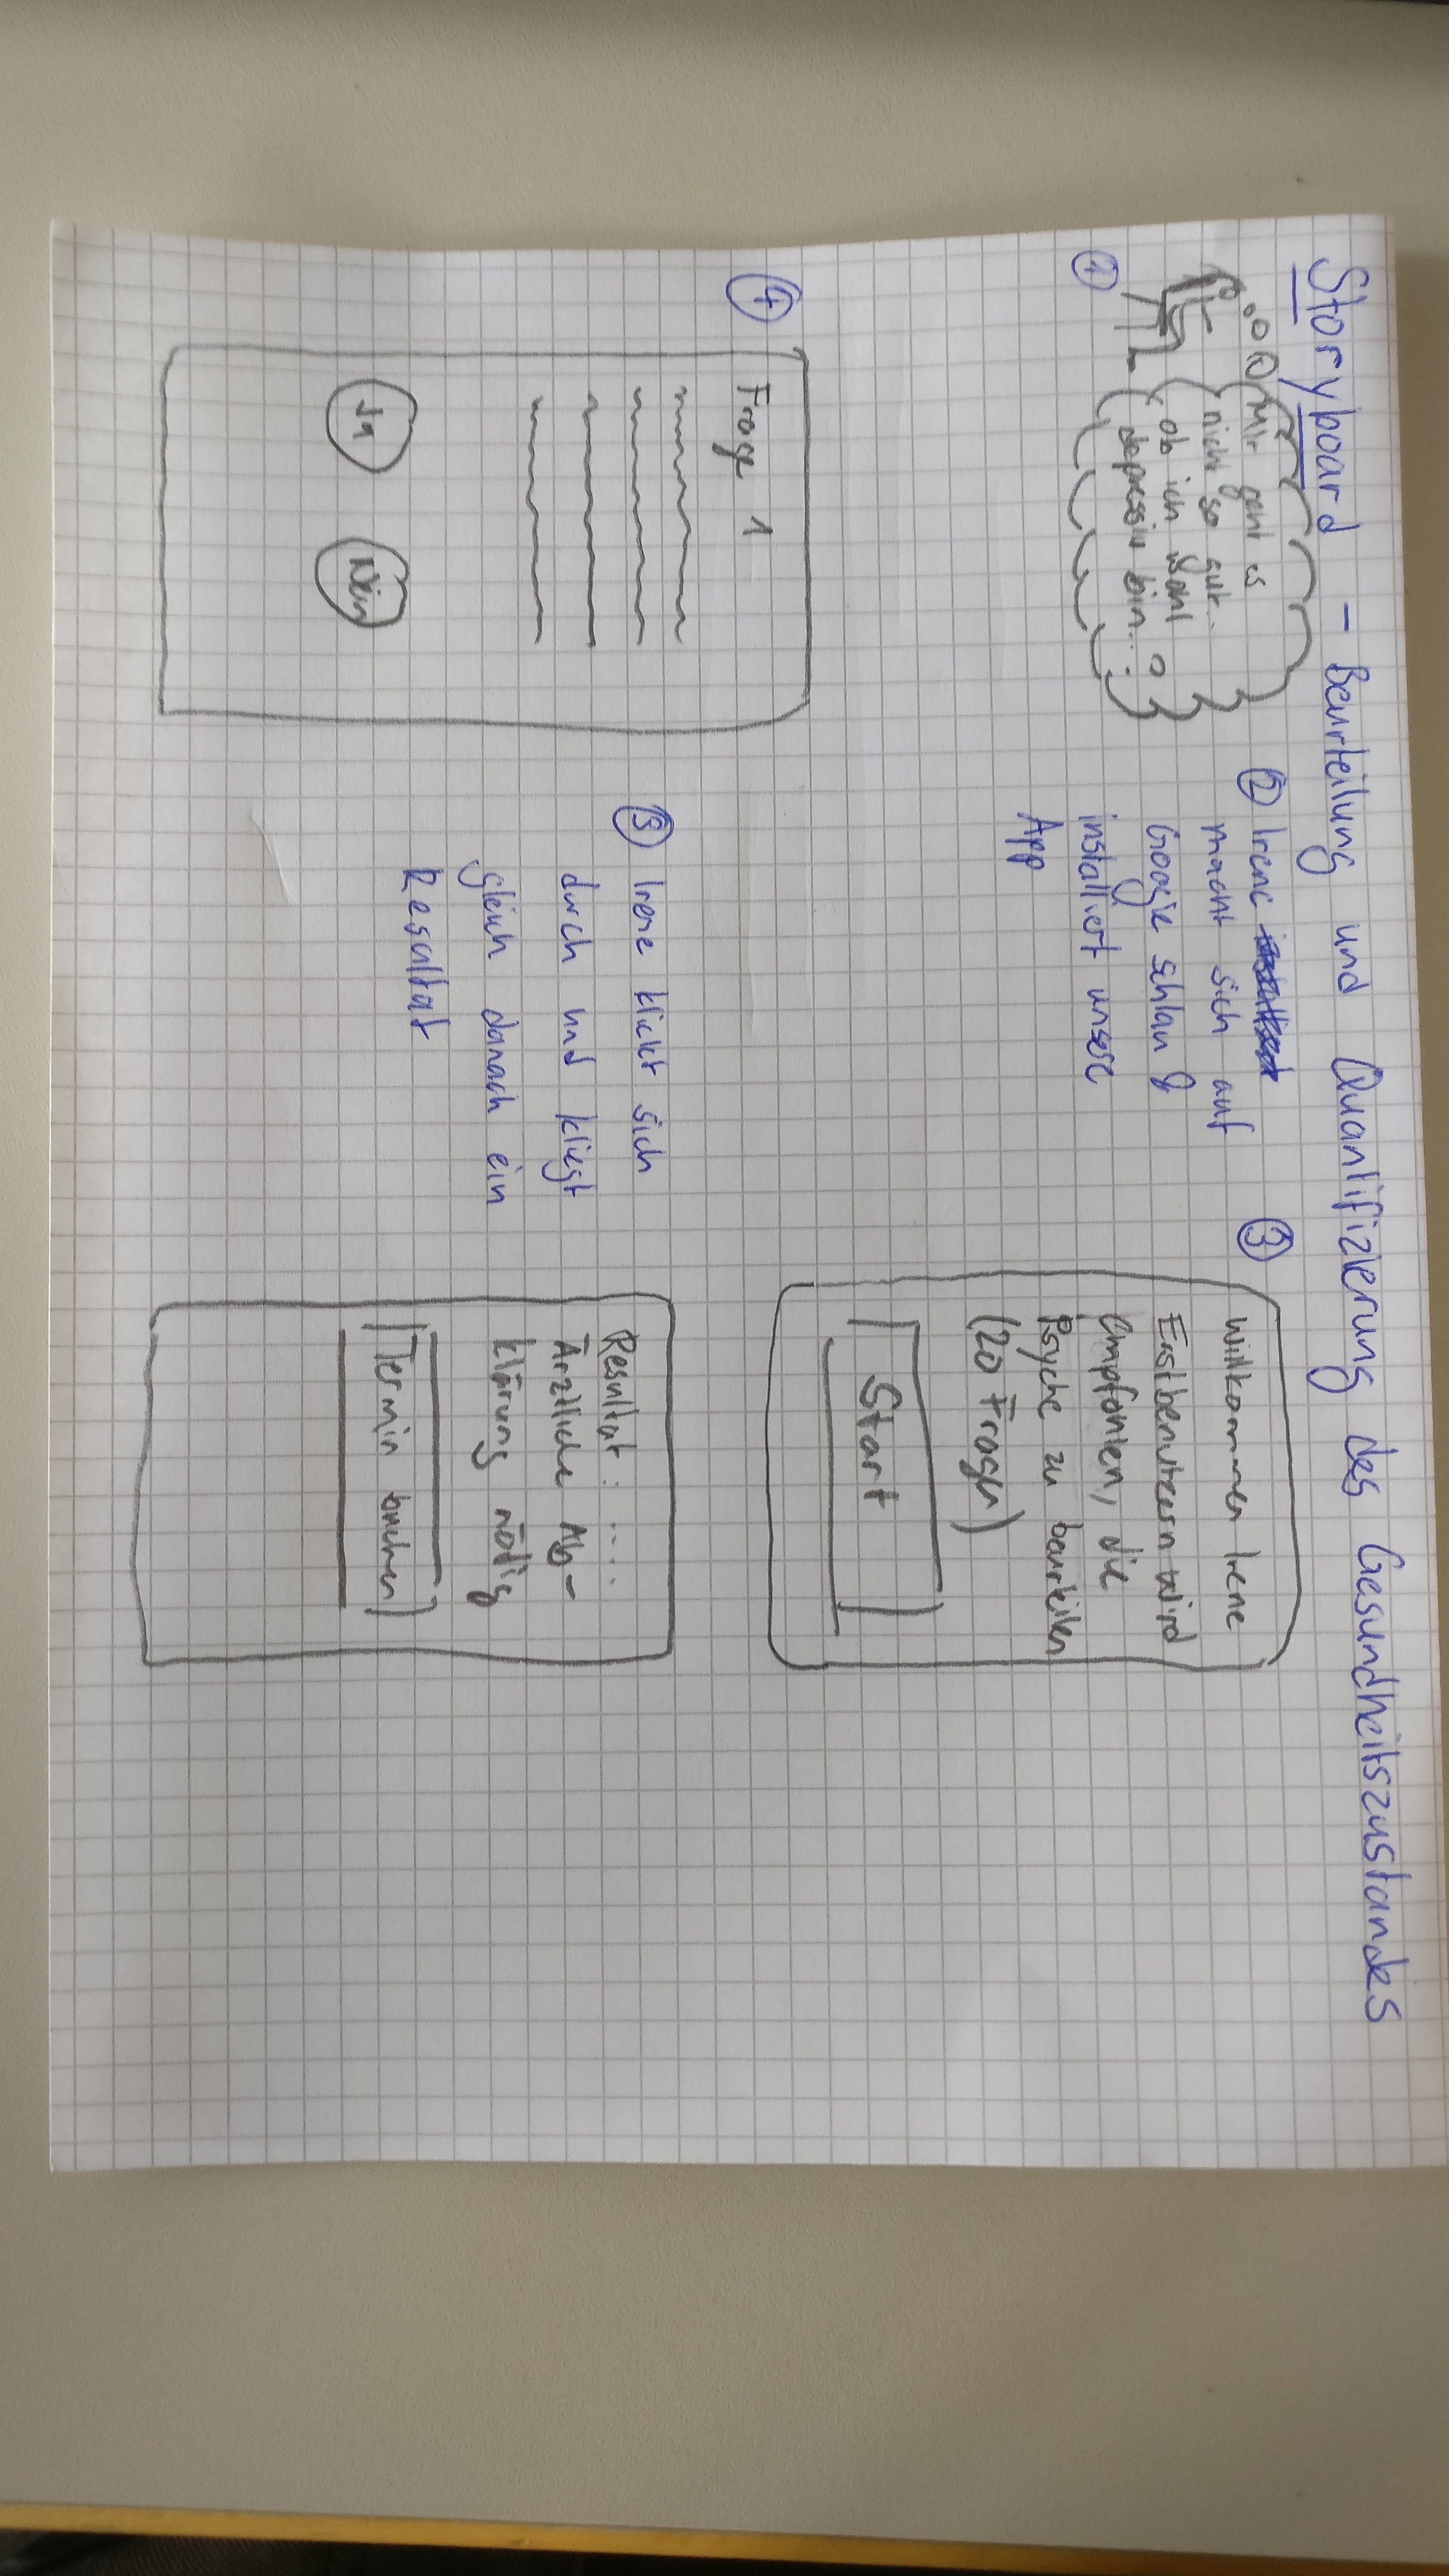 Storyboard - Beurteilung und Quantifizierung des Gesundheitszustandes
Mir geht es
nicht so gut..
ob ich wohl
depressiv bin..?
1
2 Irene
macht sich auf
Google schlau &
installiert unsere
App
3
Willkommen Irene
Erstbenutzern wird
empfohlen, die
Psyche zu beurteilen
(20 Fragen)
Start
4
Frage 1
Ja Nein
5 Irene klickt sich
durch und kliegt
gleich danach ein
Resultat
Resultat: ....
Ärztliche Ab-
klärung nötig
Termin buchen